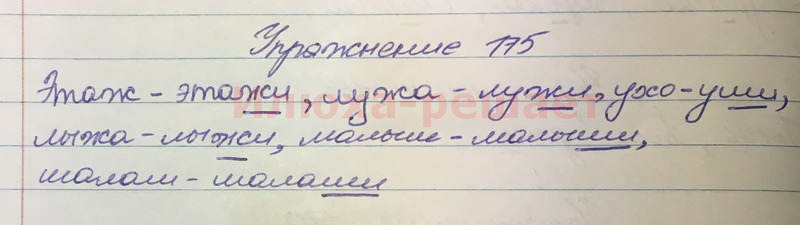 Упражнение 175
Этаж - этажи, лужа - лужи, ухо - уши,
илюха-решает
лыжа - лыжи, малыш - малыши,
шалаш - шалаши